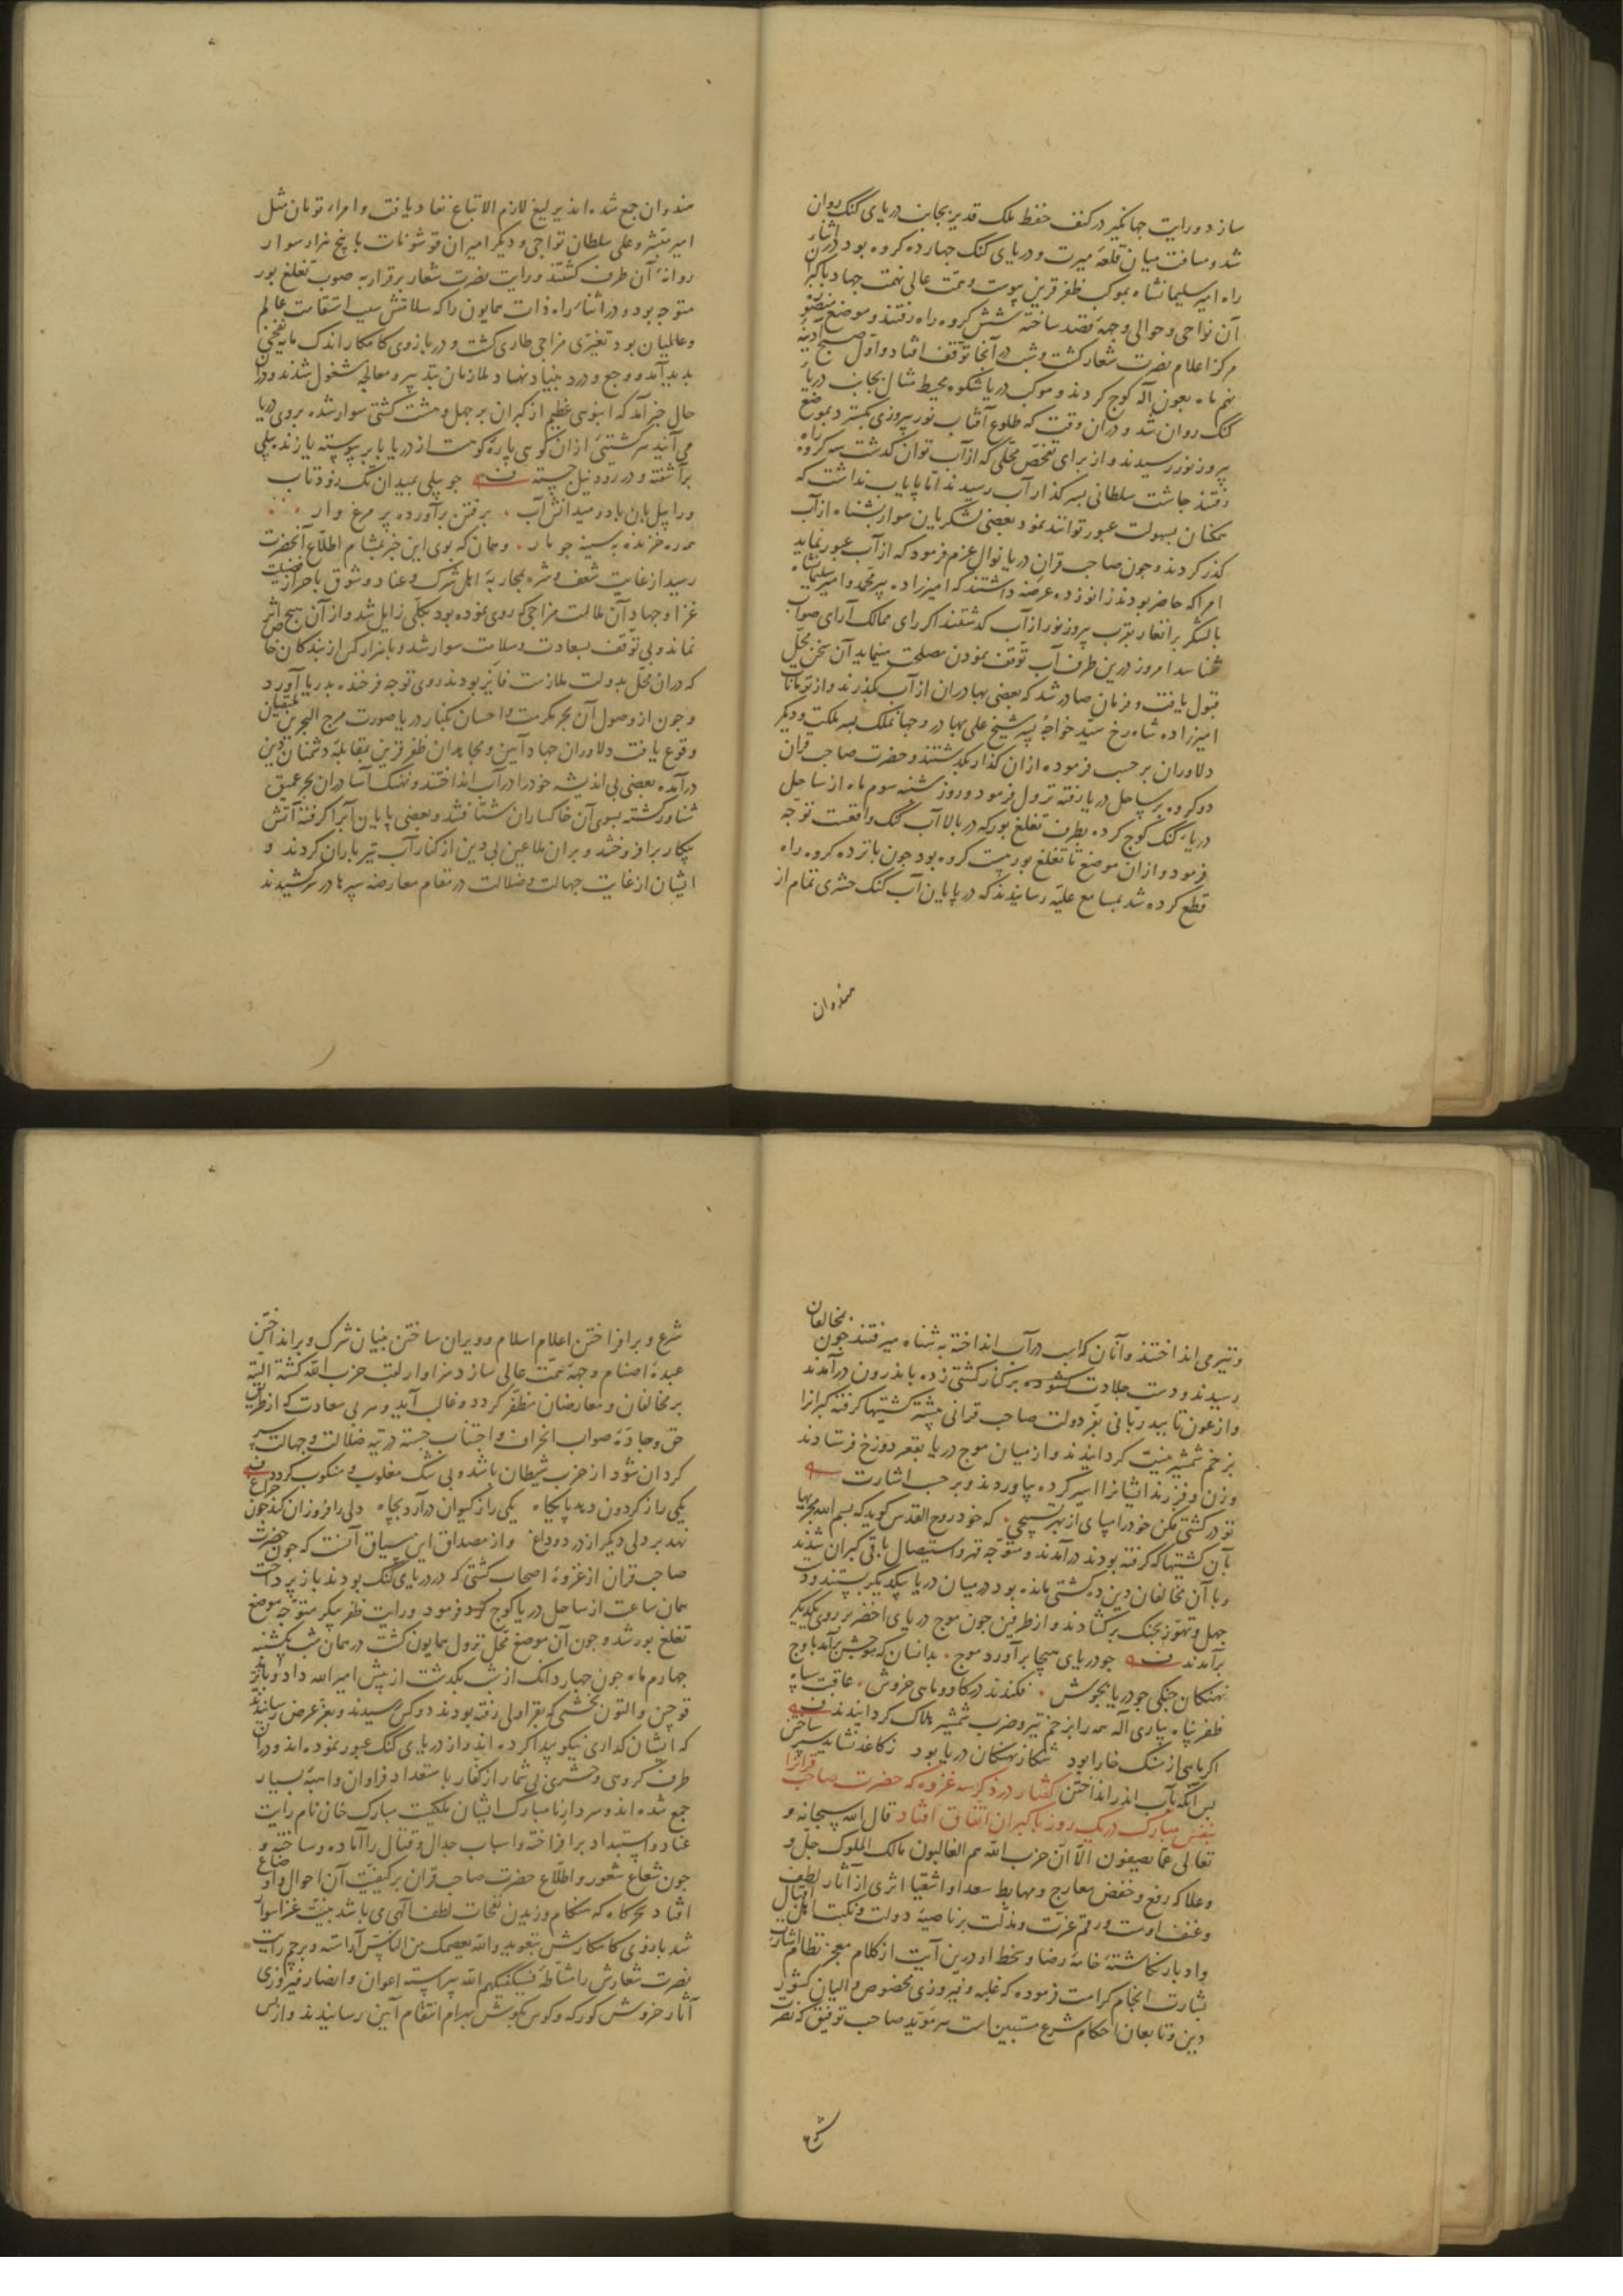 سازد و رایت جهانگیر در کنف حفظ ملک قدیر بجانب دریای گنگ روان
شد و مسافت میان قلعهٔ میرت و دریای کنک جهارده کروه بود در اثناء آن
راه امیر سلیمانشاه بموکب ظفر قرین پیوست و همت عالی نهمت جهاد با کبران
آن نواحی و حوالی وجههٔ قصد ساخته شش کروه راه رفتند و موضع منصوره
مرکز اعلام نصرت شعار کشت و شب در آنجا توقف افتاد و اول صبح آدینه
نهم ماه بعون آله کوج کردند و موکب دریا شکوه محیط مثال بجانب دریاء
کنک روان شد و دران وقت که طلوع آفتاب نور پیروزی بکسترد بموضع
پیروزنور رسیدند و از برای تفحص محلی که از آب توان کدشت سه کروه راه
رفتند جاشت سلطانی بسر کذار آب رسیدند اما پایاب نداشت که
همکنان بسهولت عبور توانند نمود بعضی لشکریان سوار بشناه از آب
کذر کردند و جون صاحب قران دریا نوال عزم فرمود که از آب عبور نماید
امرا که حاضر بودند زانو زده عرضه داشتند که امیرزاده پیرمحمد و امیر سلیمانشاه
با لشکر برانغار بقرب پیروزنور از آب کدشتند اکر رای ممالک آرای صواب
شناسد امروز درین طرف آب توقف نمودن مصلحت مینماید آن سخن محل
قبول یافت و فرمان صادر شد که بعضی بهادران از آب بکذرند و از تومانات
امیرزاده شاهرخ سید خواجه پسر شیخ علی بهادر و جهانملک پسر ملکت و دیکر
دلاوران بر حسب فرموده ازان کذار بکدشتند و حضرت صاحب قران
دو کروه بر ساحل دریا رفته نزول فرمود و روز شنبه سوم ماه از ساحل
دریاء کنک کوج کرده بطرف تغلغ بور که در بالا آب کنک واقعست توجه
فرمود و ازان موضع تا تغلغ بور بیست کروه بود جون بانزده کروه راه
قطع کرده شد بمسامع علیه رسانیدند که در پایان آب کنک حشری تمام از
هندوان
هندوان جمع شده اند یرلیغ لازم الاتباع نفاذ یافت و امراء تومان مثل
امیر مبشر و علی سلطان تواجی و دیکر امیران قوشونات با پنج هزار سوار
روانهٔ آن طرف کشتند و رایت نصرت شعار برقرار به صوب تغلغ بور
متوجه بود و در اثناء راه ذات همایون را که سلامتش سبب استقامت عالم
و عالمیان بود تغیری مزاجی طاری کشت و در بازوی کامکار اندک مایه نفخی
بدید آمد و وجع و درد بنیاد نهاد ملازمان بتدبیر و معالجه مشغول شدند و دران
حال خبر آمد که انبوهی عظیم از کبران بر جهل و هشت کشتی سوار شده بروی دریا
می آیند هر کشتیئ ازان کوهی پارهٔ کوهست از دریا پا بر پیوسته یا زنده پیلی
برآشفته و در رود نیل جسته جو پیلی بمیدان تک زود تاب
ورا پیل بان باد و میدانش آب • برفتن برآورده پر مرغ وار
همه ره خزنده به سینه جو مار • و همان که بوی این خبر بمشام اطلاع آنحضرت
رسید از غایت شعف و شره بمحاربهٔ اهل شرک و عناد و وثوق باحراز فضیلت
غزا و جهاد آن ملالت مزاجی که روی نموده بود بکلی زایل شد و از آن هیج اثر
نماند و بی توقف بسعادت و سلامت سوار شد و با هزار کس از بندکان خاص
که دران محل بدولت ملازمت فایز بودند روی توجه فرخنده بدریا آورد
و جون از وصول آن بحر مکرمت و احسان بکنار دریا صورت مرج البحرین یلتقیان
وقوع یافت دلاوران جهاد آیین و مجاهدان ظفر قرین بمقابلهٔ دشمنان دین
درآمده بعضی بی اندیشه خود را در آب انداختند و نهنک آسا دران بحر عمیق
شناور کشته بسوی آن خاکساران شتافتند و بعضی پایان آبرا کرفته آتش
پیکار برافروختند و بران ملاعین بی دین از کنار آب تیر باران کردند و
ایشان از غایت جهالت و ضلالت در مقام معارضه سپرها در سر کشیدند
و تیر می انداختند و آنان که اسب در آب انداخته به شناه میرفتند جون بمخالفان
رسیدند و دست جلادت کشوده بر کنار کشتی زده باندرون درآمدند
و از عون تایید ربانی بفر دولت صاحب قرانی بیشتر کشتیها کرفته کبرانرا
بزخم شمشیر نیست کردانیدند و از میان موج دریا بقعر دوزخ فرستادند
و زن و فرزند ایشانرا اسیر کرده بیاوردند و بر حسب اشارت
تو در کشتی فکن خود را مپای از بهر تسبیحی • که خود روح القدس کوید که بسم الله مجریها
بآن کشتیها که کرفته بودند درآمدند و متوجه قهر و استیصال باقی کبران شدند
و با آن مخالفان دین ده کشتی مانده بود در میان دریا بیکدیکر ببستند و دست
جهل و تهور بجنک برکشادند و از طرفین جون موج دریای اخضر بر روی یکدیکر
برآمدند جو دریای هیجا برآورد موج • بدانسان که موجش برآمد باوج
نهنکان جنکی جو دریا بجوش • فکندند در کاو و ماهی خروش • عاقبت سپاه
ظفر پناه بیاری آله همه را بزخم تیر و ضرب شمشیر هلاک کردانیدند
اکر ماهی از سنک خارا بود شکار نهنکان دریا بود زکاغذ نشاید سپر ساختن
بس آنکه بآب اندر انداختن کفتار در ذکر سه غزوه که حضرت صاحب قرانرا
بنفس مبارک در یک روز با کبران اتفاق افتاد قال الله سبحانه و
تعالی عما یصفون الا ان حزب الله هم الغالبون مالک الملوک جل و
علا که رفع و خفض معارج و مهابط سعدا و اشقیا اثری از آثار لطف
و عنف اوست و رقم عزت و مذلت بر ناصیهٔ دولت و نکبت اهل اقبال
و ادبار نکاشتهٔ خامهٔ رضا و سخط او درین آیت از کلام معجز نظام اشارت
بشارت انجام کرامت فرموده که غلبه و فیروزی مخصوص والیان کشور
دین و تابعان احکام شرع مستبین است هر مؤید صاحب توفیق که نصرت
شرع
شرع و برافراختن اعلام اسلام و ویران ساختن بنیان شرک و برانداختن
عبدهٔ اصنام وجههٔ همت عالی سازد سزاوار لقب حزب الله کشته البته
بر مخالفان و معارضان مظفر کردد و غالب آید و هر بی سعادت که از طریق
حق و جادهٔ صواب انحراف و اجتناب جسته در تیه ضلالت و جهالت سر
کردان شود از حزب شیطان باشد و بی شک مغلوب و منکوب کردد
یکی را ز کردون دهد پایکاه یکی را ز کیوان درآرد بچاه دلی را فروزان کند جون جراغ
نهد بر دلی دیکر از درد و داغ و از مصداق این سیاق آنست که جون حضرت
صاحب قران از غزوهٔ اصحاب کشتی که در دریای کنک بودند باز پرداخت
همان ساعت از ساحل دریا کوج فرمود و رایت ظفر پیکر متوجه موضع
تغلغ بور شد و جون آن موضع محل نزول همایون کشت در همان شب یکشنبه
جهارم ماه جون جهار دانک از شب بکدشت از پیش امیر الله داد و بایزید
قوجین و التون بخشی که بقراولی رفته بودند دو کس رسیدند و بعز عرض رسانیدند
که ایشان کذاری نیکو پیدا کرده اند و از دریای کنک عبور نموده اند و دران
طرف کروهی و حشری بی شمار از کفار با استعداد فراوان و اهبهٔ بسیار
جمع شده اند و سردار نامبارک ایشان ملکیست مبارک خان نام رایت
عناد و استبداد برافراخته و اسباب جدال و قتال را آماده و ساخته و
جون شعاع شعور و اطلاع حضرت صاحب قران بر کیفیت آن احوال و اوضاع
افتاد سحرکاه که هنکام وزیدن نفحات لطف آلهی می باشد بنیت غزا سوار
شد بازوی کامکارش بتعوید والله یعصمک من الناس آراسته و پرچم رایت
نصرت شعارش را مشاطهٔ فسیکفیکهم الله پیراسته اعوان و انصار فیروزی
آثار خروش کورکه و کوس بکوش بهرام انتقام آیین رسانیدند و از بس